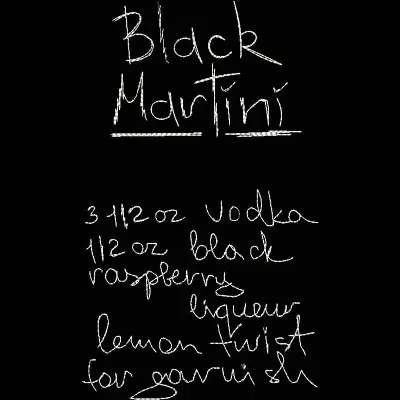 Black
Martini
3 1/2 oz vodka
1/2 oz black
raspberry
liqueur
lemon twist
for garnish